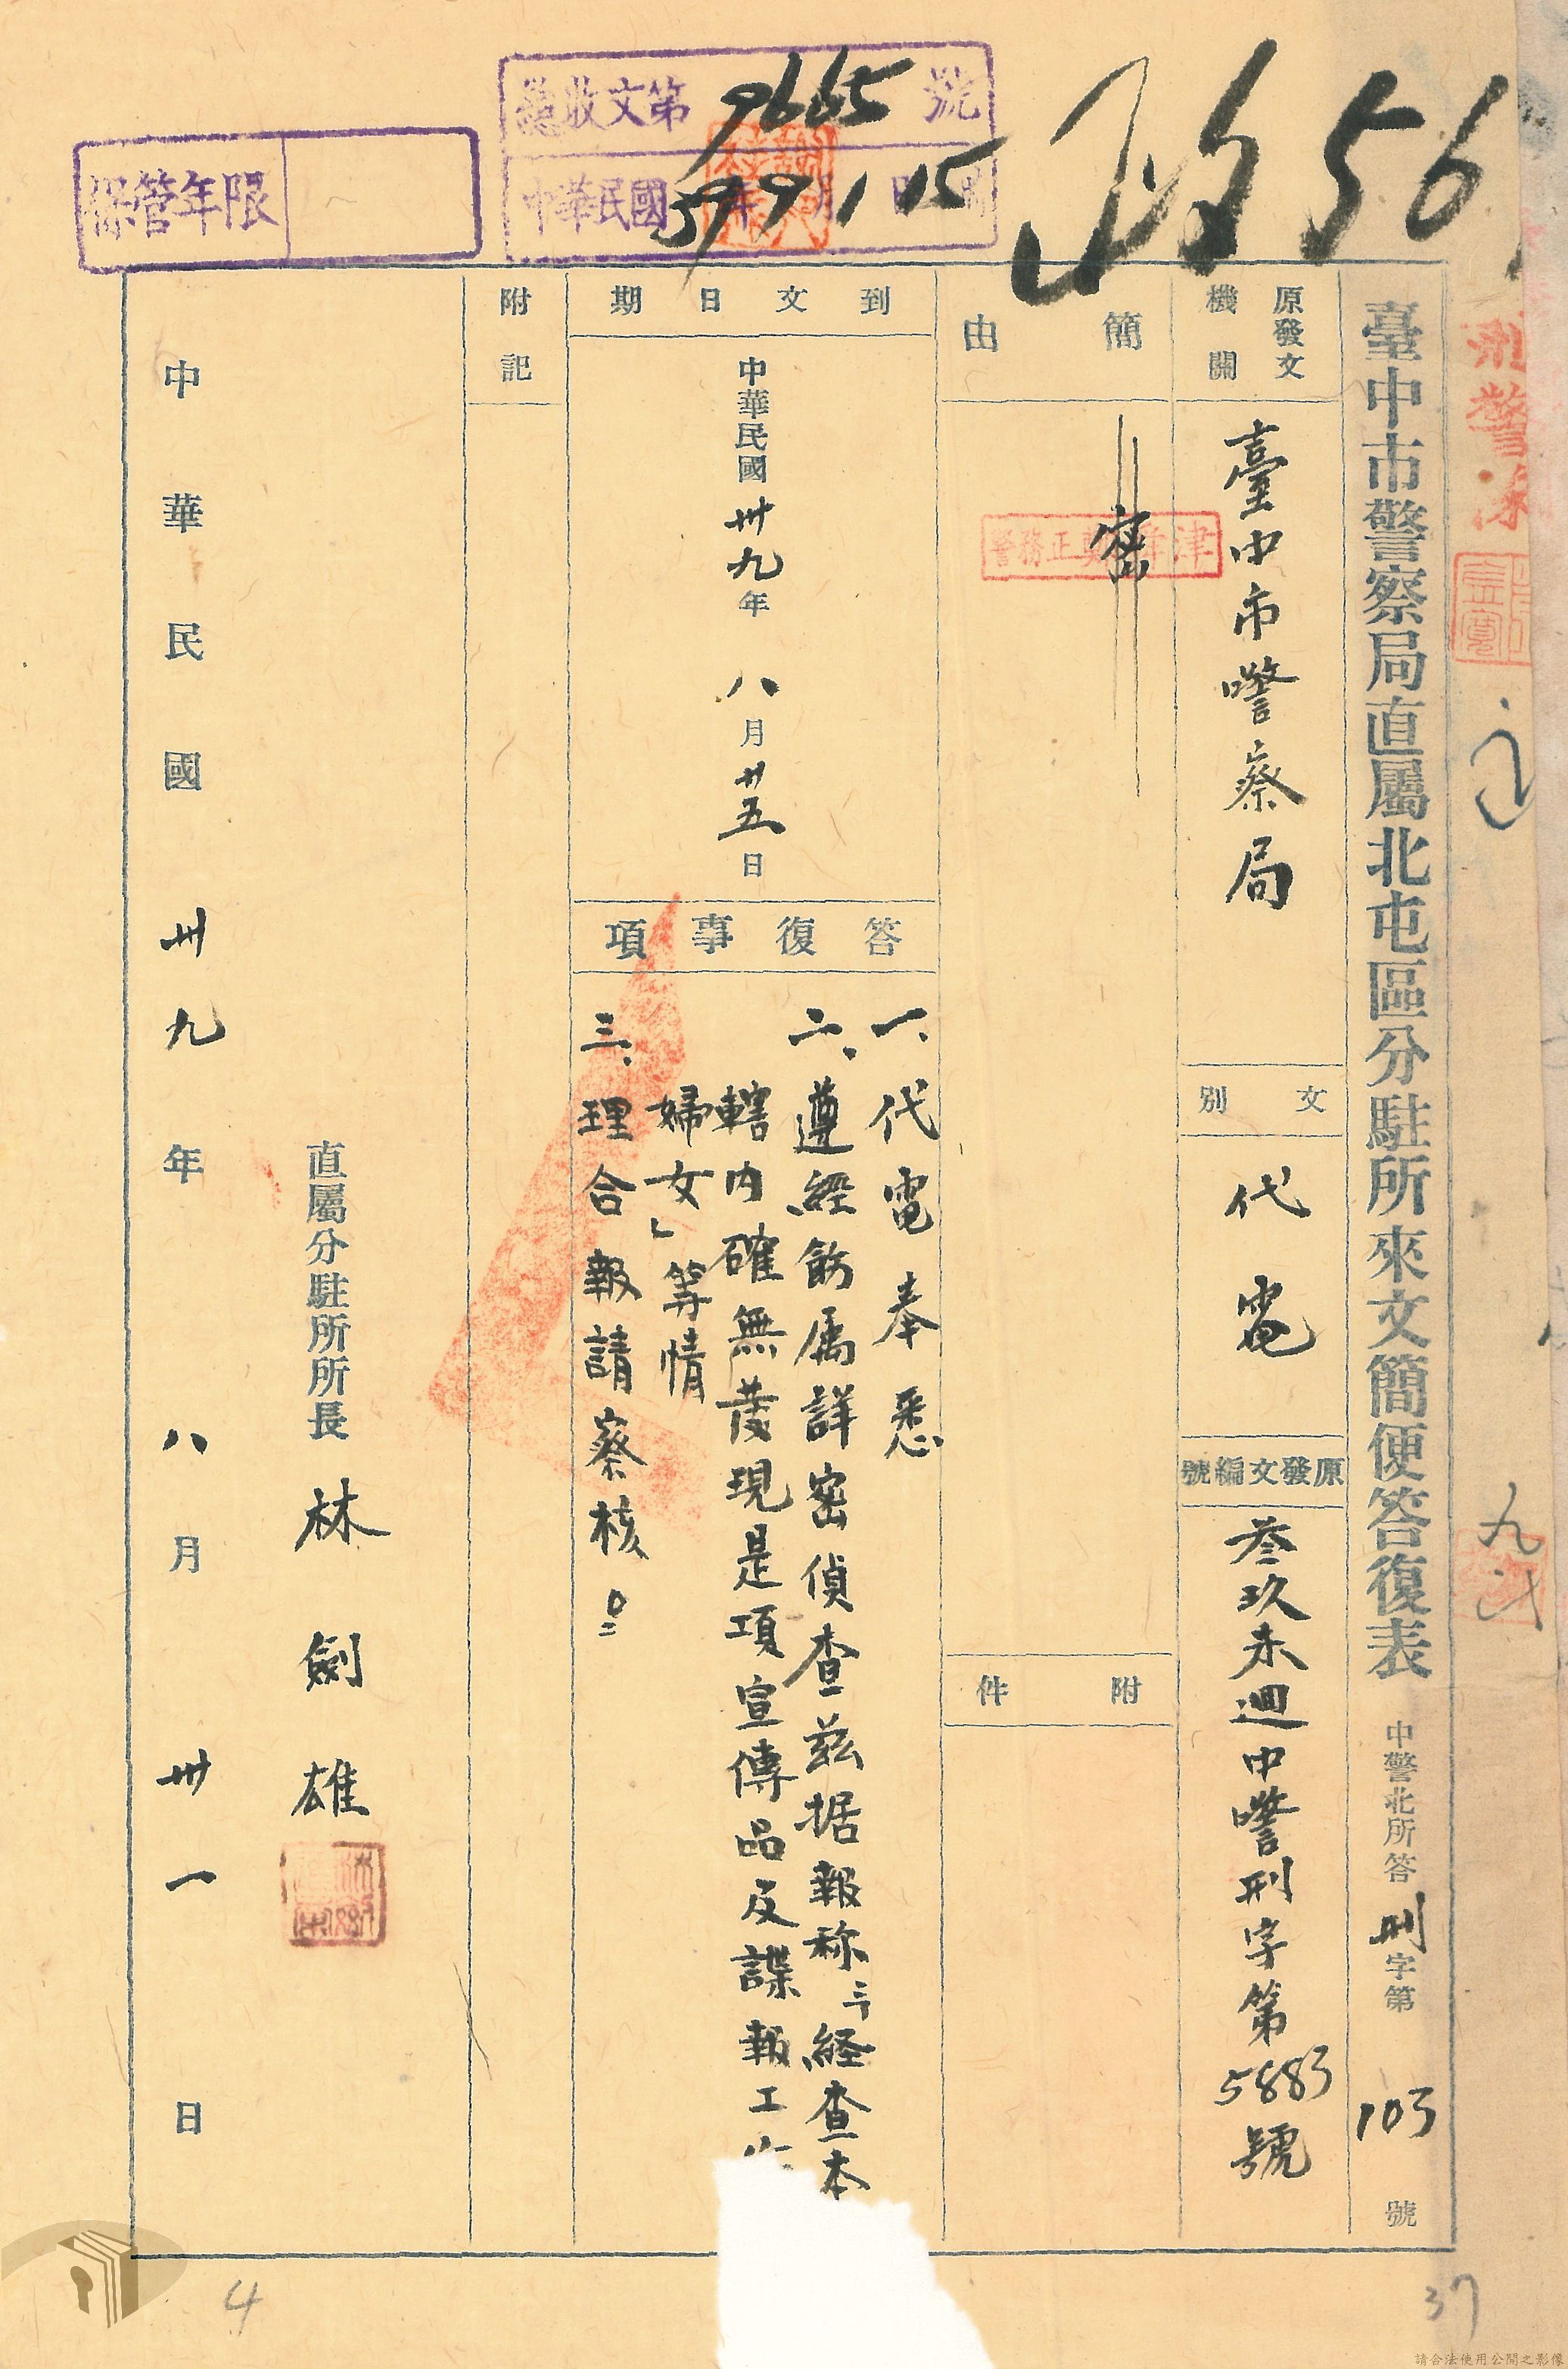 總收文第9665號
中華民國39年9月15日
保管年限
政56
臺中市警察局直屬北屯區分駐所來文簡便答復表
中警北所答刑字第103號
原發文機關
臺中市警察局
文別
代電
原發文編號
叁玖未迴中警刑字第5883號
簡由
密
附件
到文日期
中華民國卅九年八月廿五日
答復事項
一、代電奉悉
二、遵經飭属詳密偵查茲据報称「経查本
轄内確無發現是項宣傳品反諜報工
婦女」等情
三、理合報請察核
附記
直屬分駐所所長林劍雄
中華民國卅九年八月卅一日
4
37
請合法使用公開之影像